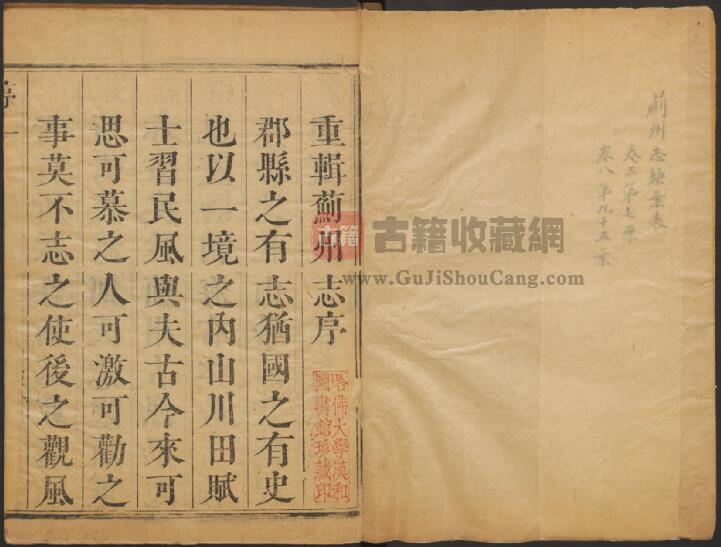 蓟州志缺葉表
卷三第七葉
卷八第九十五葉
重輯薊州志序
郡縣之有志猶國之有史
也以一境之內山川田賦
士習民風與夫古今來可
思可慕之人可激可勸之
事莫不志之使後之觀風
序 一
哈佛大學漢和
圖書館珍藏印
古籍
古籍收藏網
www.GuJiShouCang.com